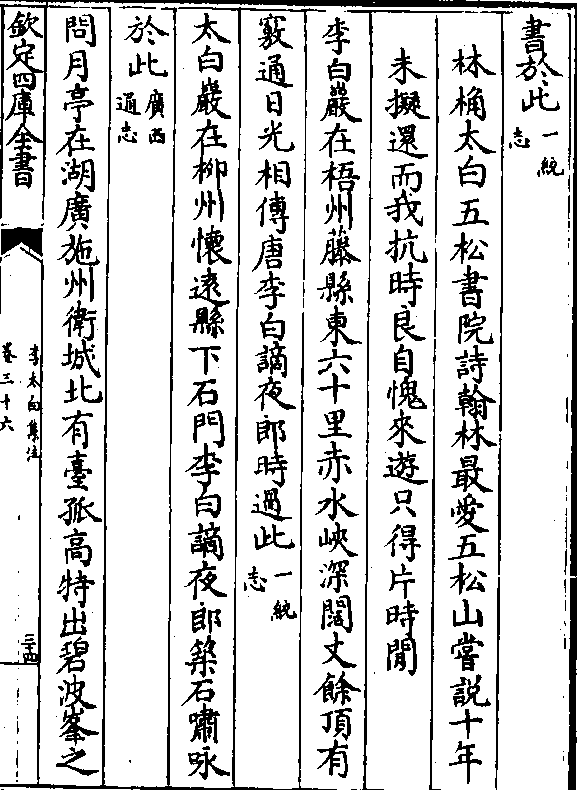 書於此一統志
林桷太白五松書院詩翰林最愛五松山嘗説十年
未擬還而我抗時良自愧來遊只得片時閒
李白巖在梧州藤縣東六十里赤水峽深闊丈餘頂有
竅通日光相傳唐李白謫夜郎時過此一統志
太白巖在柳州懷遠縣下石門李白謫夜郎築石嘯咏
於此廣西通志
問月亭在湖廣施州衛城北有臺孤高特出碧波峯之
欽定四庫全書
李太白集注
卷三十六
三四